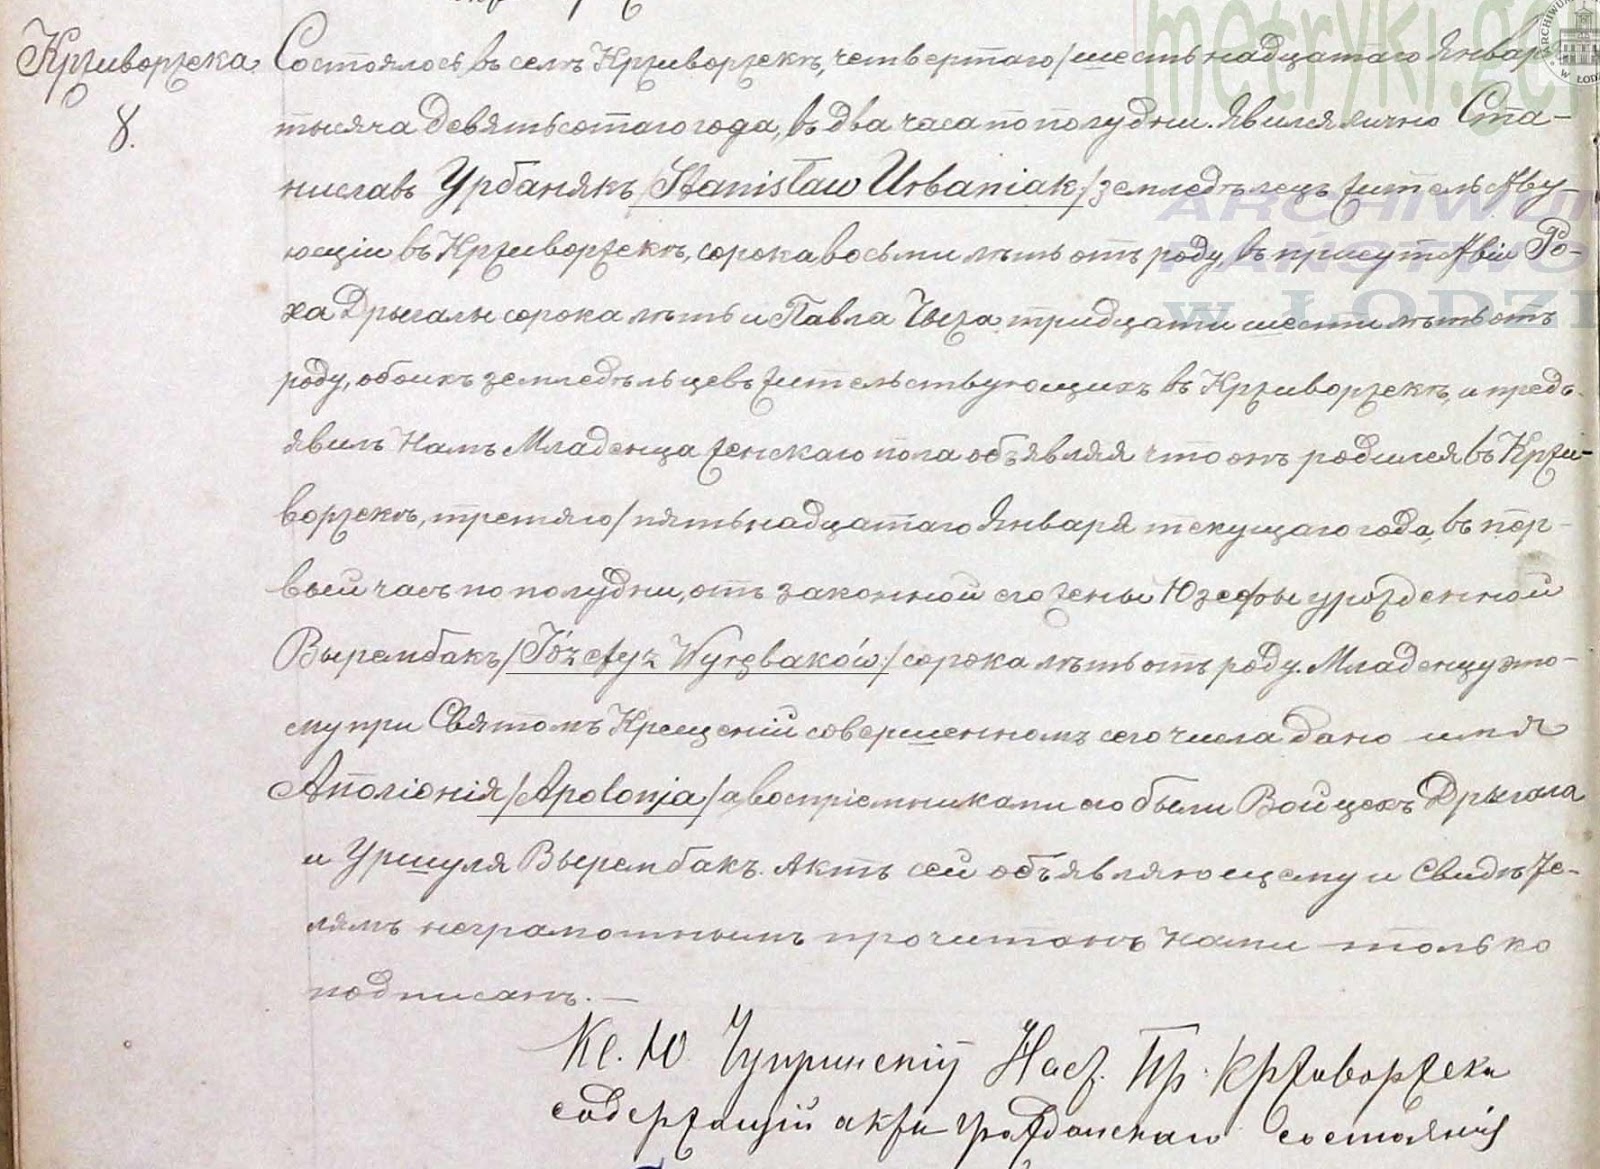 Крживоржека
8.
Состоялось въ селѣ Крживоржекѣ, четвертаго /шестьнадцатаго Января
тысяча девятьсотаго года, въ два часа по полудни. Явился лично Ста-
ниславъ Урбанякъ /Stanisław Urbaniak/ земледѣлецъ жительству-
ющій въ Крживоржекѣ, сорока восьми лѣтъ отъ роду, въ присутствіи Ро-
ха Дрыгалы сорока лѣтъ и Павла Чыжа тридцати шести лѣтъ отъ
роду, обоихъ земледѣльцевъ жительствующихъ въ Крживоржекѣ, и предъ-
явилъ Намъ Младенца женскаго пола объявляя что онъ родился въ Кржи-
воржекѣ, третяго /пятьнадцатаго Января текущаго года, въ пер-
вый часъ по полудни, отъ законной его жены Юзефы урожденной
Вырембакъ /Józefy z Wyrębaków/ сорока лѣтъ отъ роду. Младенцу это-
му при Святомъ Крещеніи совершенномъ сего числа дано имя
Аполіонія /Apolonja/ а воспріемниками его были Войцехъ Дрыгала
и Уршуля Вырембакъ. Актъ сей объявляющему и Свидѣте-
лямъ неграмотнымъ прочитанъ Нами только
подписанъ. —
Кс. Ю. Чупринскій Наст. Пр. Крживоржека
содержащій акты гражданскаго состоянія
metryki.gen
ARCHIWUM
PAŃSTWO
w ŁODZI